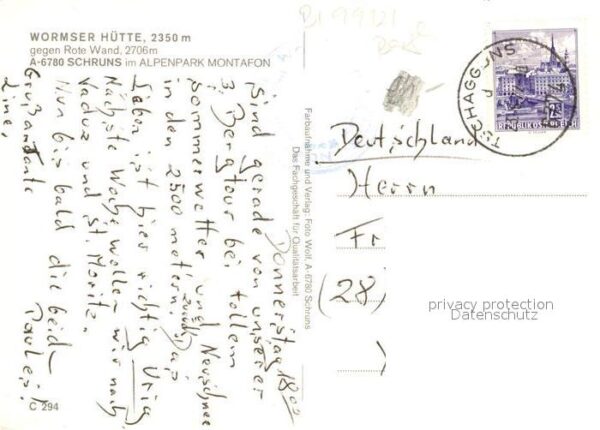 WORMSER HÜTTE, 2350 m
gegen Rote Wand, 2706m
A-6780 SCHRUNS im ALPENPARK MONTAFON
Donnerstag 18 00
Sind gerade von unserer
3. Bergtour bei tollem
Sommerwetter und Neuschnee
in den 2500 metern. zurück. Das
Leben ist hier richtig Urig
Nächste Woche wollen wir nach
Vaduz und St. Moritz.
Nun bis bald die beid-
Gruß an Tante
Line,
C 294
Farbaufnahme und Verlag: Foto Wolf, A-6780 Schruns
Das Fachgeschäft für Qualitätsarbeit
BI99121
TSCHAGGUNS
REPUBLIK ÖSTERREICH
Deutschland
Herrn
Fr
(28)
privacy protection
Datenschutz